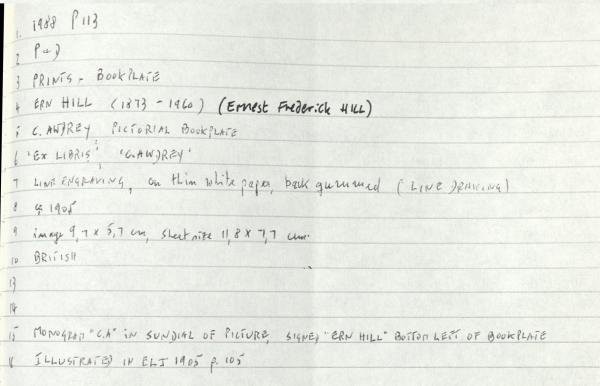 1. 1988 P 113
2 P+D
3 PRINTS - BOOKPLATE
4 ERN HILL (1873 - 1960) (Ernest Frederick HILL)
5 C. AWDREY PICTORIAL BOOKPLATE
6 'EX LIBRIS' 'C. AWDREY'
7 LINE ENGRAVING, on thin white paper, back gummed (LINE DRAWING)
8 1905
9 image 9,7 x 5,7 cm, sheet size 11,8 x 7,7 cm.
10 BRITISH
13
14
15 MONOGRAM "C.A" IN SUNDIAL OF PICTURE, SIGNED "ERN HILL" BOTTOM LEFT OF BOOKPLATE
16 ILLUSTRATED IN ELJ 1905 p. 105